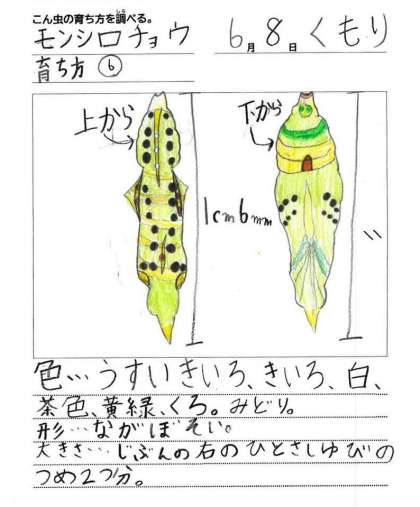 こん虫の育ち方を調べる。
モンシロチョウ 6月8日 くもり
育ち方 ⑥
上から 下から
1cm6mm 〃
色…うすいきいろ、きいろ、白、
茶色、黄緑、くろ。みどり。
形…ながぼそい。
大きさ…じぶんの右のひとさしゆびの
つめ2つ分。